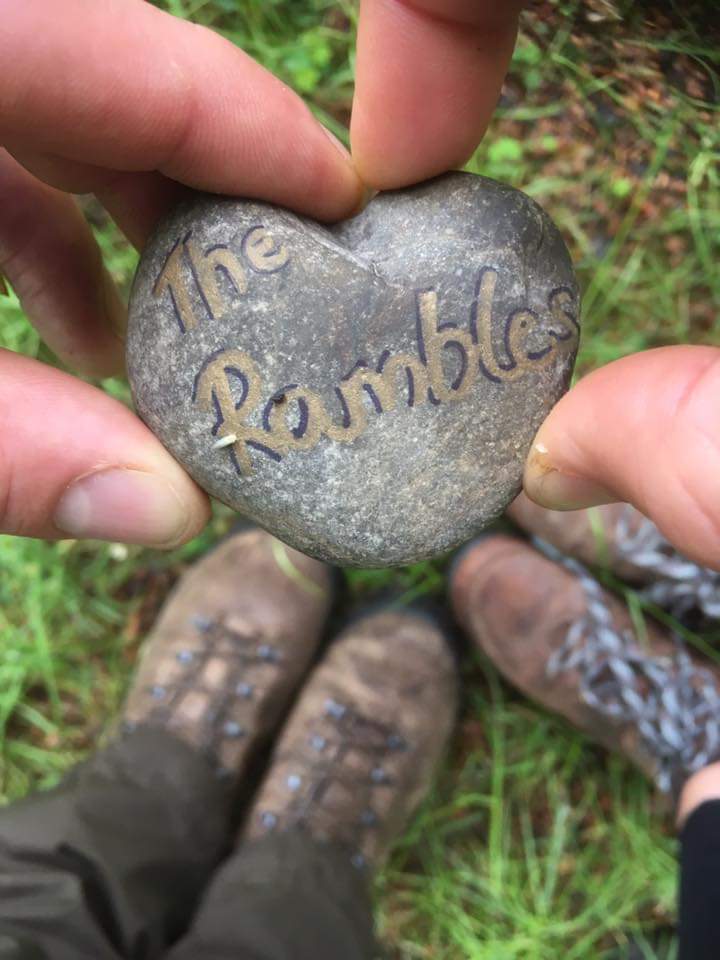 The
Rambles